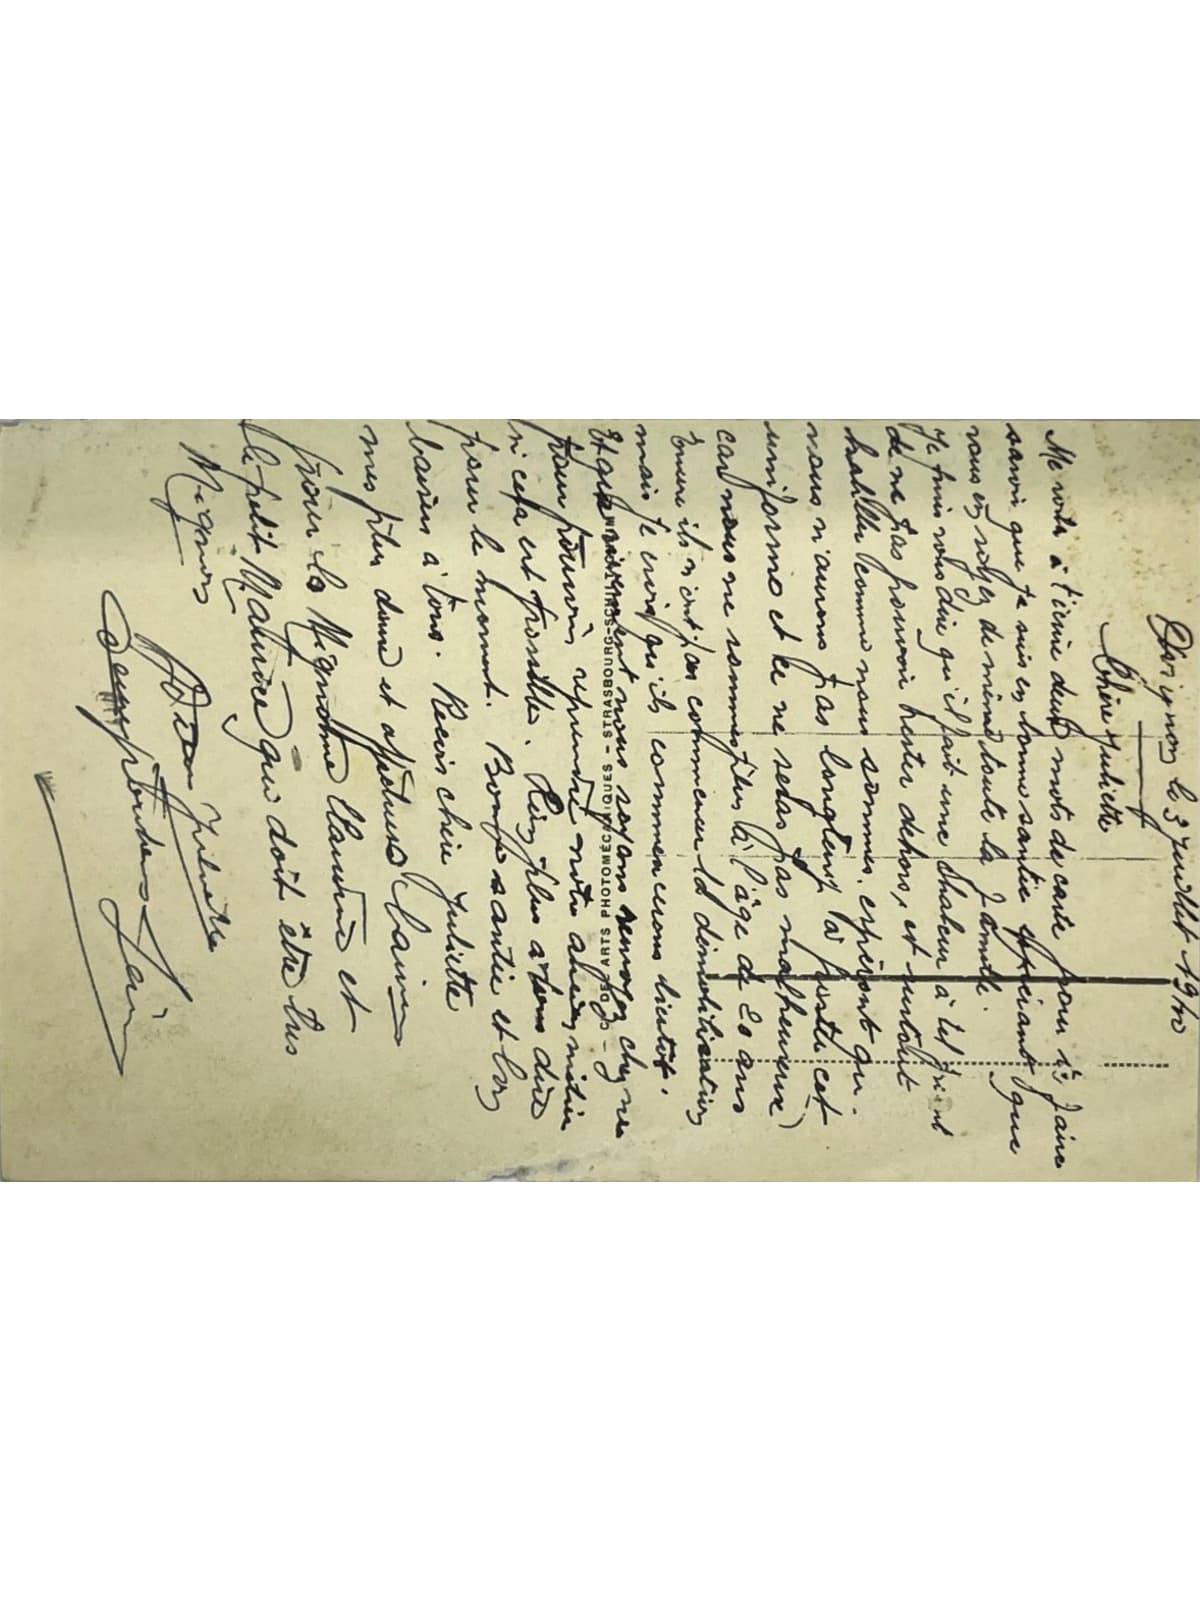 Avignon le 3 Juillet 1940
Chère Juliette
Me voila a t'écrire deux mots de carte pour te faire
savoir que je suis en bonne santé espérant que
vous en soyez de même toute la famille.
Je puis vous dire qu'il fait une chaleur à tel point
de ne pas pouvoir rester dehors, et surtout
habillé comme nous sommes. espéront que
nous n'aurons pas longtemp à porter cet
uniforme et ce ne seras pas malheureux
car nous ne sommes plus à l'âge de 20 ans
Encore ils n'ont pas commencer la démobilisation
mais je crois qu'ils commencerons bientot.
Et que nous soyons renvoyez chez nous
pour pouvoir reprendre notre ancien métier
si cela est possible. Rien plus a vous dire
pour le moment. Bonne santée et bons
baisers à tous. Recois chère Juliette
mes plus doux et affectueux baisers
pour la Mignonne Claudine et
le petit Maurice qui doit être très
Mignon
DEL ARTS PHOTOMÉCANIQUES - STRASBOURG-SCHILTIGHEIM